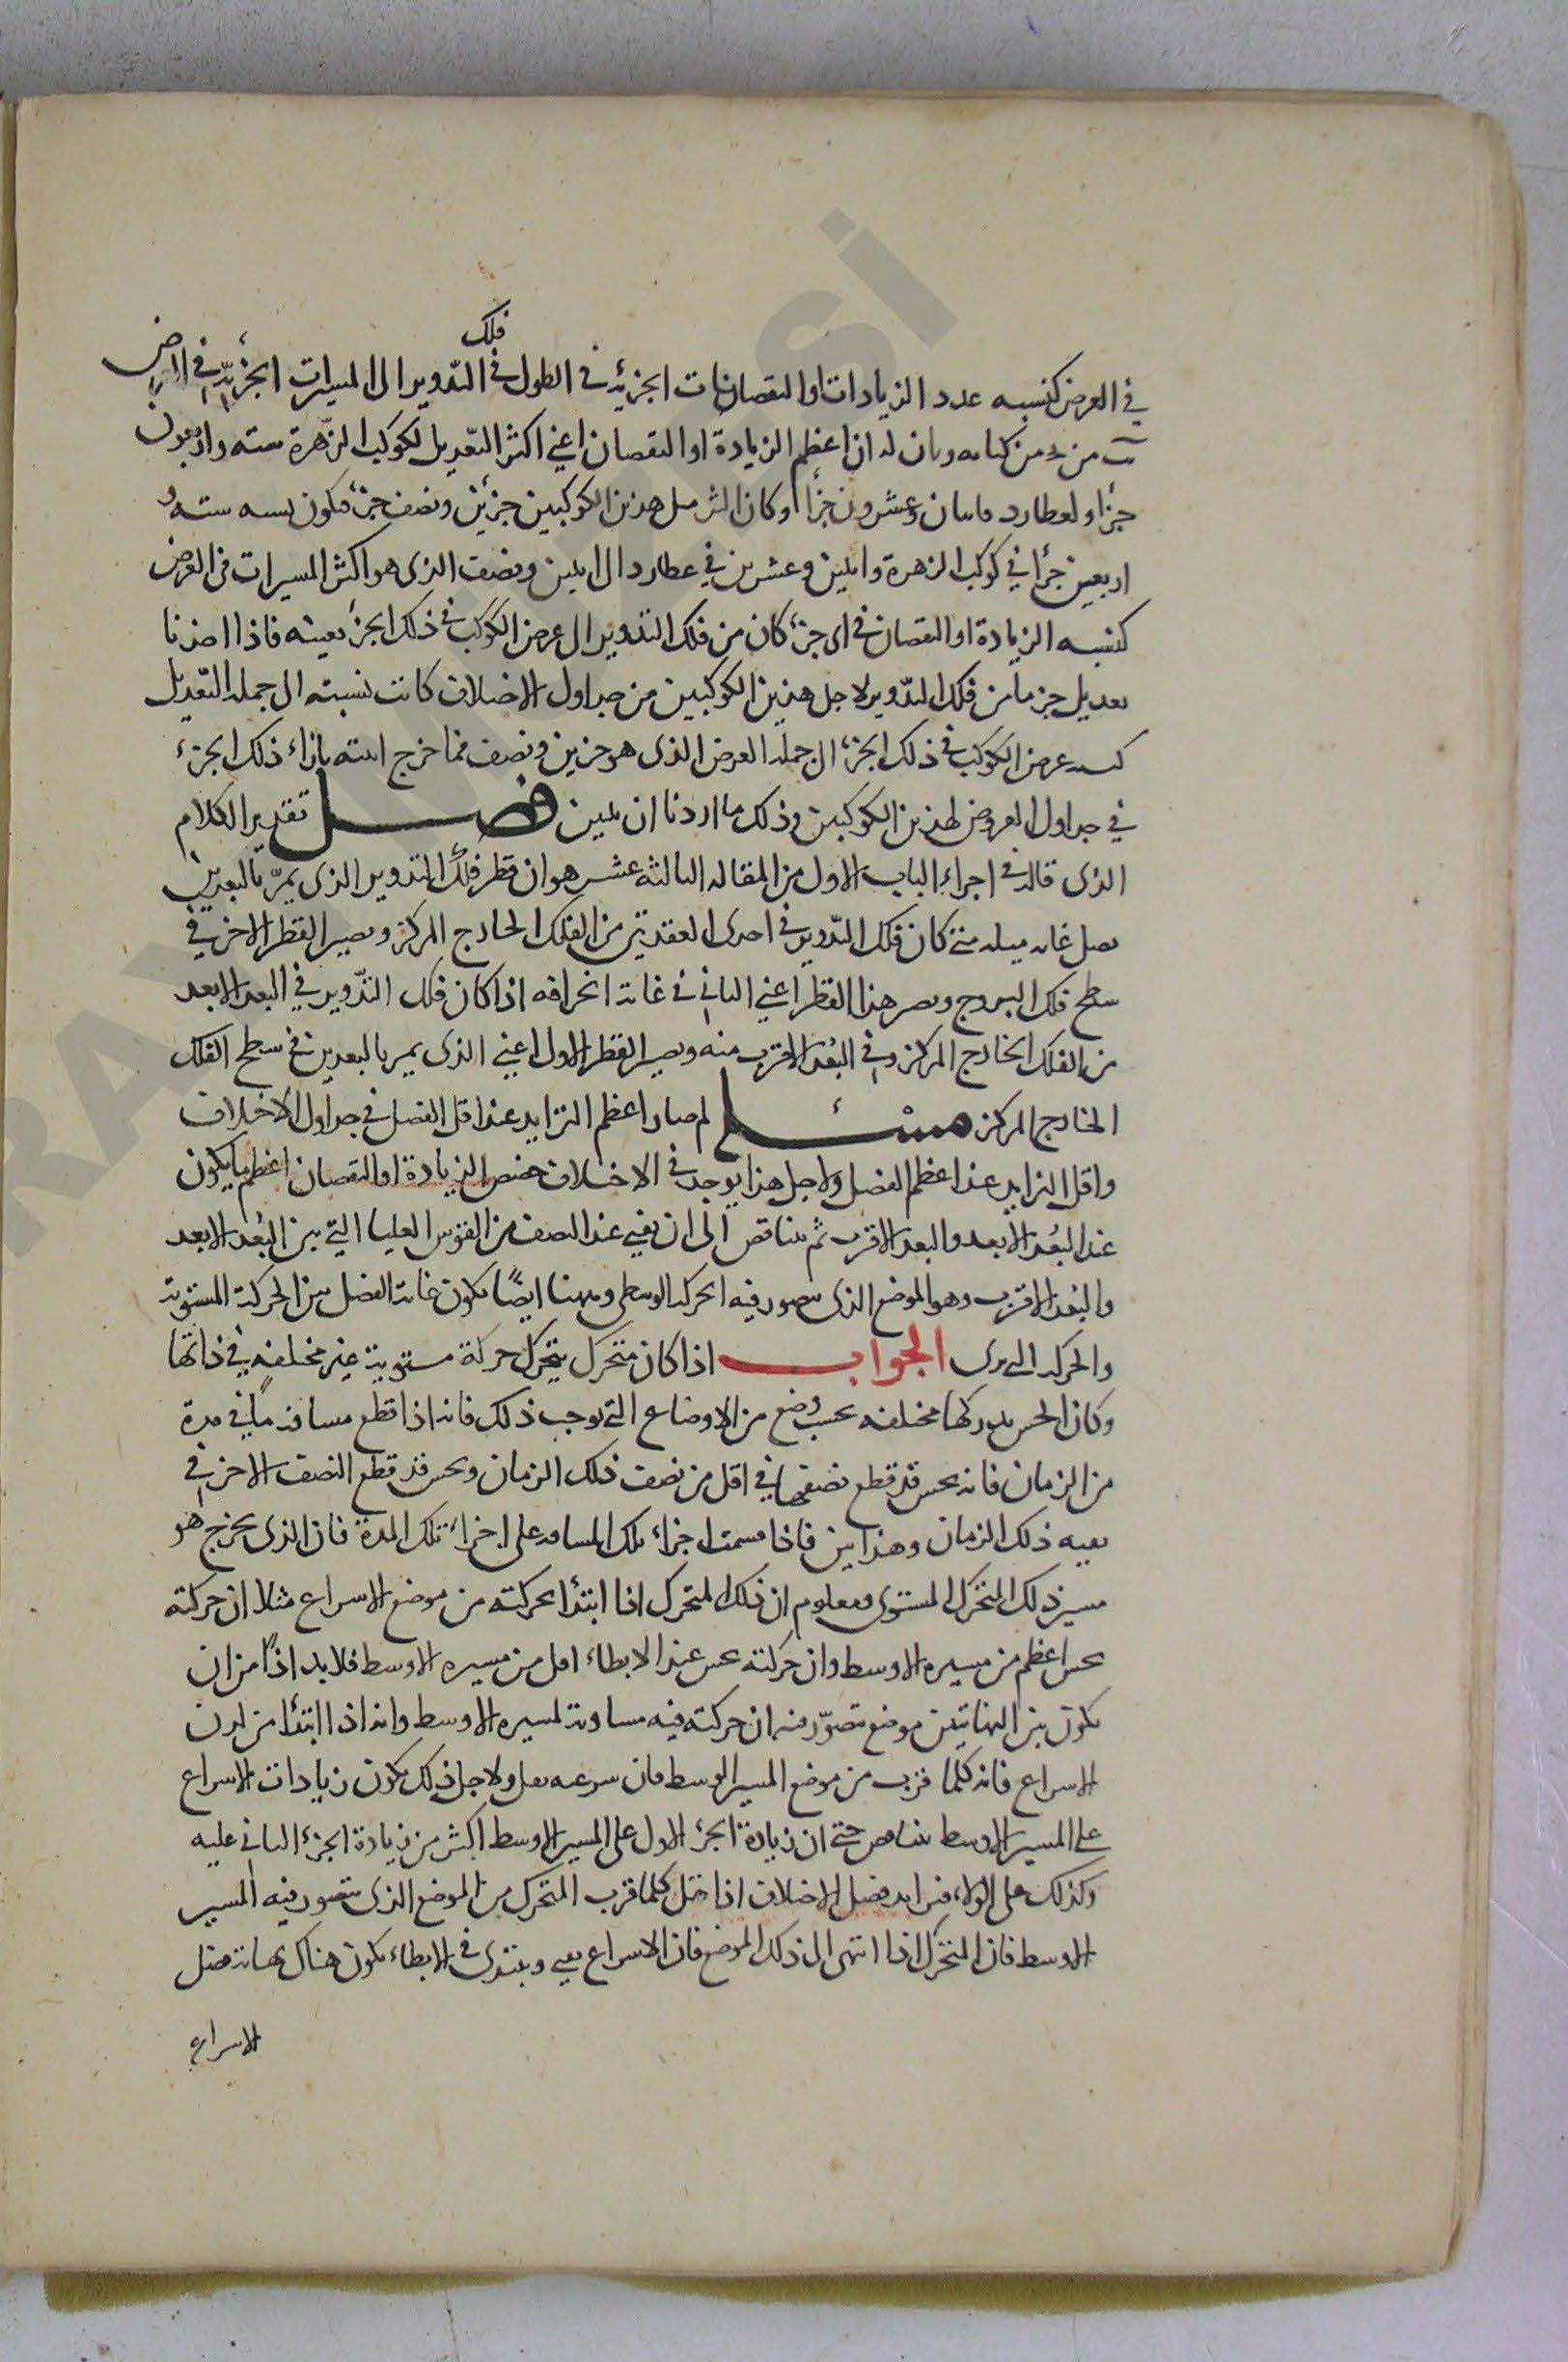 فلك
في العرض كنسبه عدد الزيادات او النقصانات الجزئية في الطول في التدوير الى المسيرات الجزئية في
من كتابه وبان له ان اعظم الزيادة او النقصان اعني اكثر التعديل لكوكب الزهرة سته واربعون
جزأ ولعطارد وعشرون جزأ وكان هذين الكوكبين جزئين ونصف جزء فكون سته و
اربعين جزأ في كوكب الزهرة واثنين وعشرين في عطارد الى اثنين ونصف الذى هو اكثر المسيرات فى العرض
كنسبه الزيادة او النقصان فى اى جزء كان من فلك التدوير الى عرض الكوكب فى ذلك الجزء بعينه فاذا اخذنا
تعديل جزء ما من فلك التدوير لاجل هذين الكوكبين من جداول الاختلاف كانت نسبته الى جمله التعديل
كنسبه عرض الكوكب فى ذلك الجزء الى جمله العرض الذى هو جزين ونصف فما خرج اثبته بازاء ذلك الجزء
في جداول العروض لهذين الكوكبين وذلك ما اردنا ان نبين فصل تقدير الكلام
الذى قاله فى اجراء الباب الاول من المقاله الثالثه عشر هو ان قطر فلك التدوير الذى يمر بالبعدين
يصل غايه ميله متى كان فلك التدوير فى احدى العقدتين من الفلك الخارج المركز ويصير القطر الاخر في
سطح فلك البروج ويصير هذا القطر اعني الثاني في غاية انحرافه اذا كان فلك التدوير في البعد الابعد
من الفلك الخارج المركز وفي البعد الاقرب منه ويصير القطر الاول اعني الذى يمر بالبعدين في سطح الفلك
الخارج المركز مسئلة لم صار اعظم التزايد عند اقل الفضل في جداول الاختلاف
واقل التزايد عند اعظم الفضل ولاجل هذا يوجد في الاختلاف الزيادة او النقصان اعظم ما يكون
عند البعد الابعد والبعد الاقرب ثم يتناقص الى ان يفنى عند النصف من القوس العليا التي بين البعد الابعد
والبعد الاقرب وهو الموضع الذى يتصور فيه الحركه الوسطى وههنا ايضًا يكون غاية الفضل بين الحركة المستوية
والحركه التى ترى الجواب اذا كان متحرك يتحرك حركة مستوية غير مختلفه فى ذاتها
وكان الحس يدركها مختلفه بحسب وضع من الاوضاع التى توجب ذلك فانه اذا قطع مسافة ما في مدة
من الزمان فانه يحس قد قطع نصفها في اقل من نصف ذلك الزمان ويحس قد قطع النصف الاخر في
بقيه ذلك الزمان وهذا بين فاذا قسمت اجزاء تلك المسافه على اجزاء تلك المدة فان الذى يخرج هو
مسير ذلك المتحرك المستوى ومعلوم ان ذلك المتحرك اذا ابتدأ بحركته من موضع الاسراع مثلا ان حركته
يحس اعظم من مسيره الاوسط وان حركته يحس عند الابطاء اقل من مسيره الاوسط فلا بد اذًا من ان
يكون بين النهايتين موضع يتصور فيه ان حركته فيه مساوية لمسيره الاوسط وانه اذا ابتدأ من لدن
الاسراع فانه كلما قرب من موضع المسير الاوسط فان سرعته تقل ولاجل ذلك يكون زيادات الاسراع
على المسير الاوسط يتناقص حتى ان زيادة الجزء الاول على المسير الاوسط اكثر من زيادة الجزء الثاني عليه
وكذلك على الولاء فتزايد فضل الاختلاف اذا يقل كلما قرب المتحرك من الموضع الذى يتصور فيه المسير
الاوسط فان المتحرك اذا انتهى الى ذلك الموضع فان الاسراع يفنى ويبتدى فى الابطاء يكون هناك نهاية فضل
الاسراع